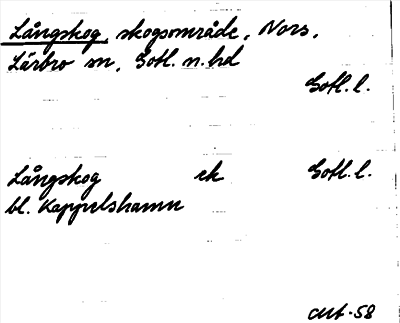 Långskog, skogsområde, Nors,
Lärbro sn, Gotl. n. hd
Gotl. l.
Långskog ek Gotl. l.
bl. Kappelshamn
-58